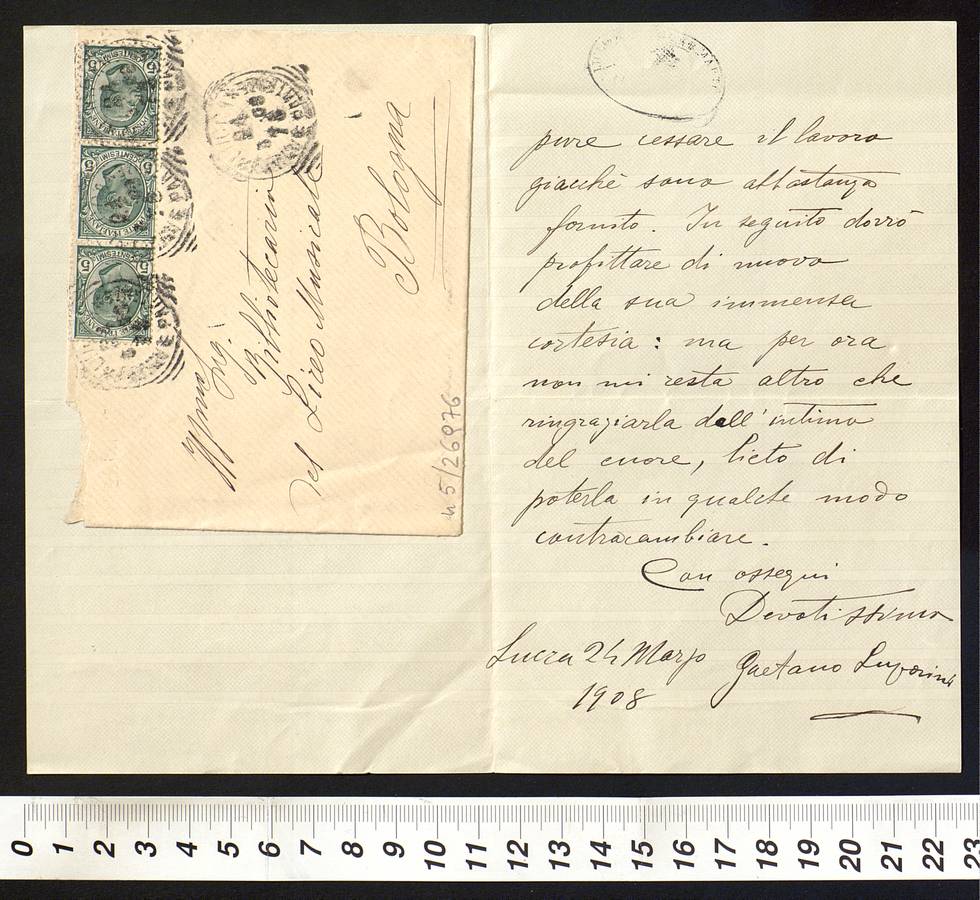 Illmo Sig.
Bibliotecario
del Liceo Musicale
Bologna
POSTE ITALIANE
CENTESIMI
5
POSTE ITALIANE
CENTESIMI
5
POSTE ITALIANE
CENTESIMI
5
n 5/26976
pure cessare il lavoro
giacchè sono abbastanza
fornito. In seguito dovrò
profittare di nuovo
della sua immensa
cortesia: ma per ora
non mi resta altro che
ringraziarla dell'intimo
del cuore, lieto di
poterla in qualche modo
contracambiare.
Con ossequi
Devotissimo
Gaetano Luporini
Lucca 24 Marzo
1908
0 1 2 3 4 5 6 7 8 9 10 11 12 13 14 15 16 17 18 19 20 21 22 23